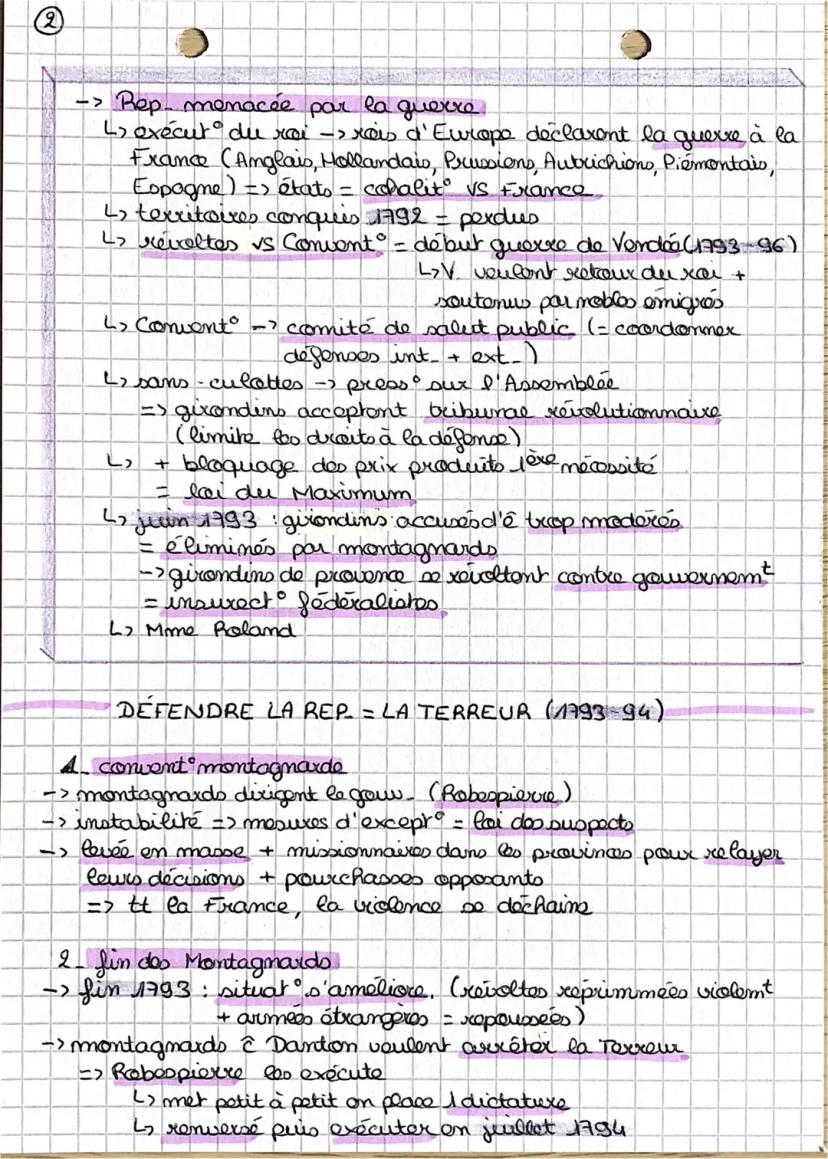 2
-> Rep. menacée par la guerre
↳ exécut° du roi -> rois d'Europe déclarent la guerre à la
France (Anglais, Hollandais, Prussiens, Autrichiens, Piémontais,
Espagne) => états = coalit° VS France
↳ territoires conquis 1792 = perdus
↳ révoltes VS Convent° = début guerre de Vendée (1793-96)
↳ V. veulent retour du roi +
soutenus par nobles émigrés
↳ Convent° -> comité de salut public (= coordonner
défenses int. + ext.)
↳ sans-culottes -> press° sur l'Assemblée
=> girondins acceptent tribunal révolutionnaire
(limite les droits à la défense)
↳ + bloquage des prix produits 1ère nécessité
= loi du Maximum
↳ juin 1793 : girondins accusés d'ê trop modérés
= éliminés par montagnards
-> girondins de provence se révoltent contre gouvernemt
= insurect° fédéralistes
↳ Mme Roland
DÉFENDRE LA REP. = LA TERREUR (1793-94)
1. convent° montagnarde
-> montagnards dirigent le gouv. (Robespierre)
-> instabilité => mesures d'except° = loi des suspects
-> levée en masse + missionnaires dans les provinces pour relayer
leurs décisions + pourchasses opposants
=> tt la France, la violence se déchaîne
2. fin des Montagnards
-> fin 1793 : situat° s'améliore. (révoltes reprimmées violemt
+ armées étrangères = repoussées)
-> montagnards c̄ Danton veulent arrêter la Terreur
=> Robespierre les exécute
↳ met petit à petit en place 1 dictature
↳ renversé puis exécuter en juillet 1794